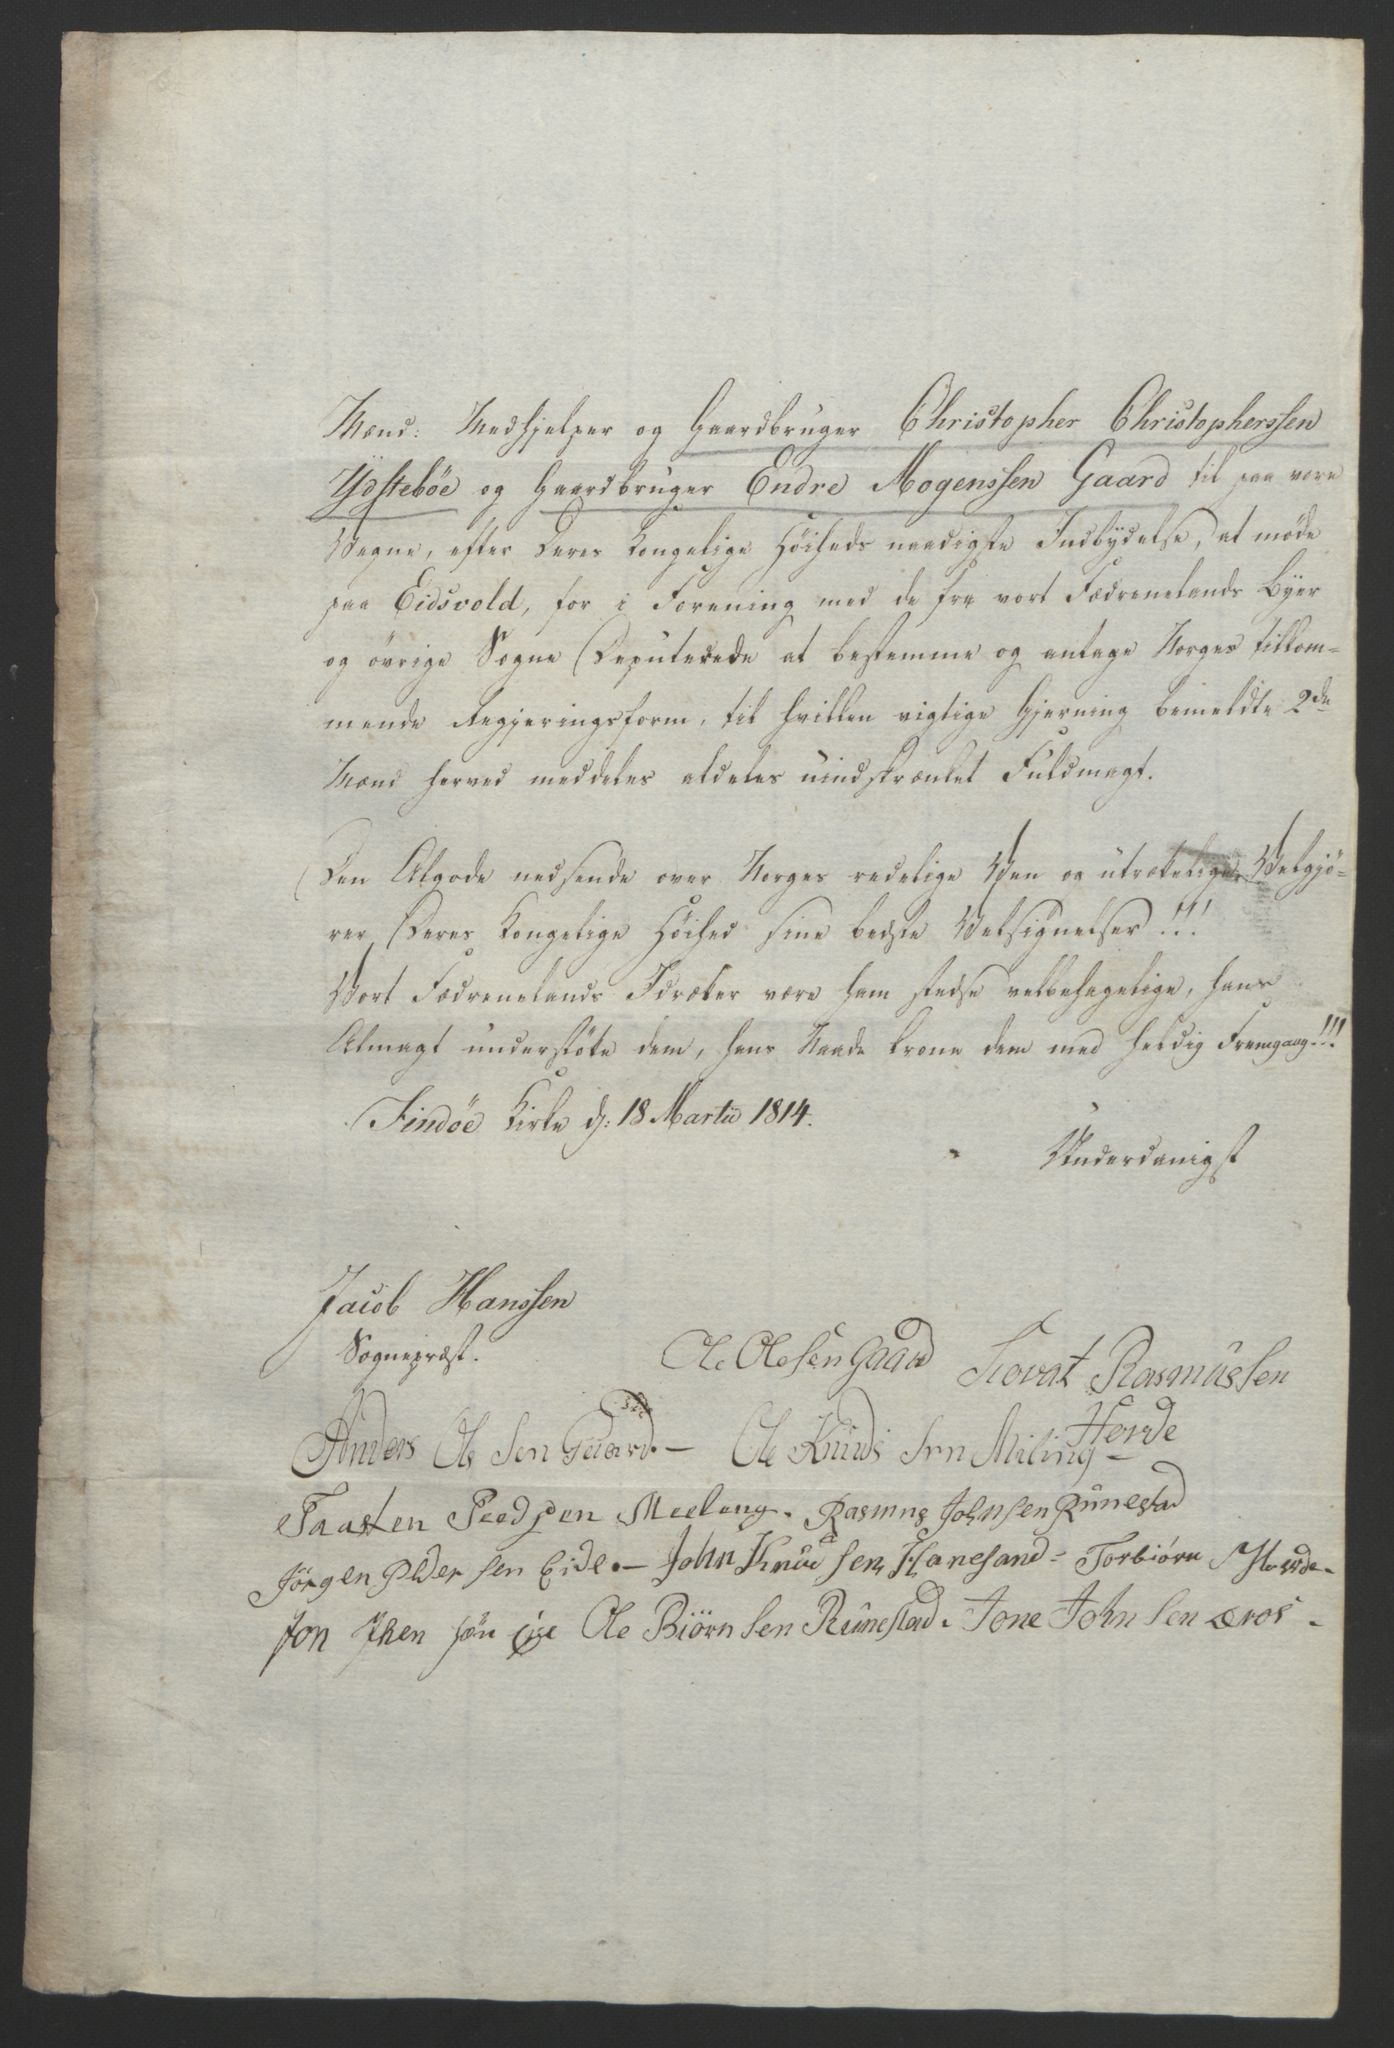 Mænd: Medhjelper og Gaardbruger Christopher Christopherssen
Ydsteböe og Gaardbruger Endre Mogenssen Gaard til paa vore
Vegne, efter Deres Kongelige Höiheds naadigste Indbydelse, at møde
paa Eidsvold, for i Forening med de fra vort Fædrenelands Byer
og övrige Sogne Deputerede at bestemme og antage Norges tilkom-
mende Regjeringsform, til hvilken vigtige Gjerning bemeldte 2de
Mænd herved meddeles aldeles uindskrænket Fuldmagt.
Den Algode nedsende over Norges redelige Ven og utrættelige Velgjö-
rer, Deres Kongelige Höihed sine bedste Velsignelser!!!
Vort Fædrenelands Idrætter være ham stedse velbehagelige, hans
Almagt understötte dem, hans Naade krone dem med heldig Fremgang!!!
Findöe Kirke d: 18 Martii 1814.
Underdanigst
Jacob Hanssen
Sognepræst.
Ole Olesen Gaard Tovat Rasmussen
Horde
Anders Olesen Gaard.- Ole Knudssen Miling-
Taasten Peedsen Meeleng. Rasmus Johnsen Runestad
Jörgen Pedersen Eide.- John Knudsen Hanesand- Torbiörn Horde.
Jon Iversön Ole Biörnsen Runestad. Jone Johnsen æros-